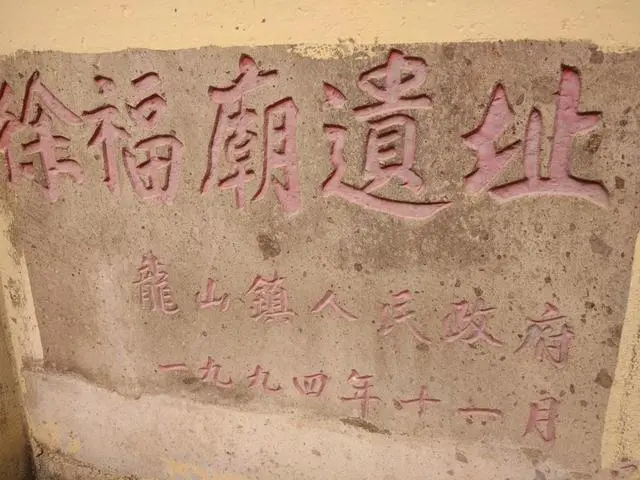 徐福廟遺址
龍山鎮人民政府
一九九四年十一月